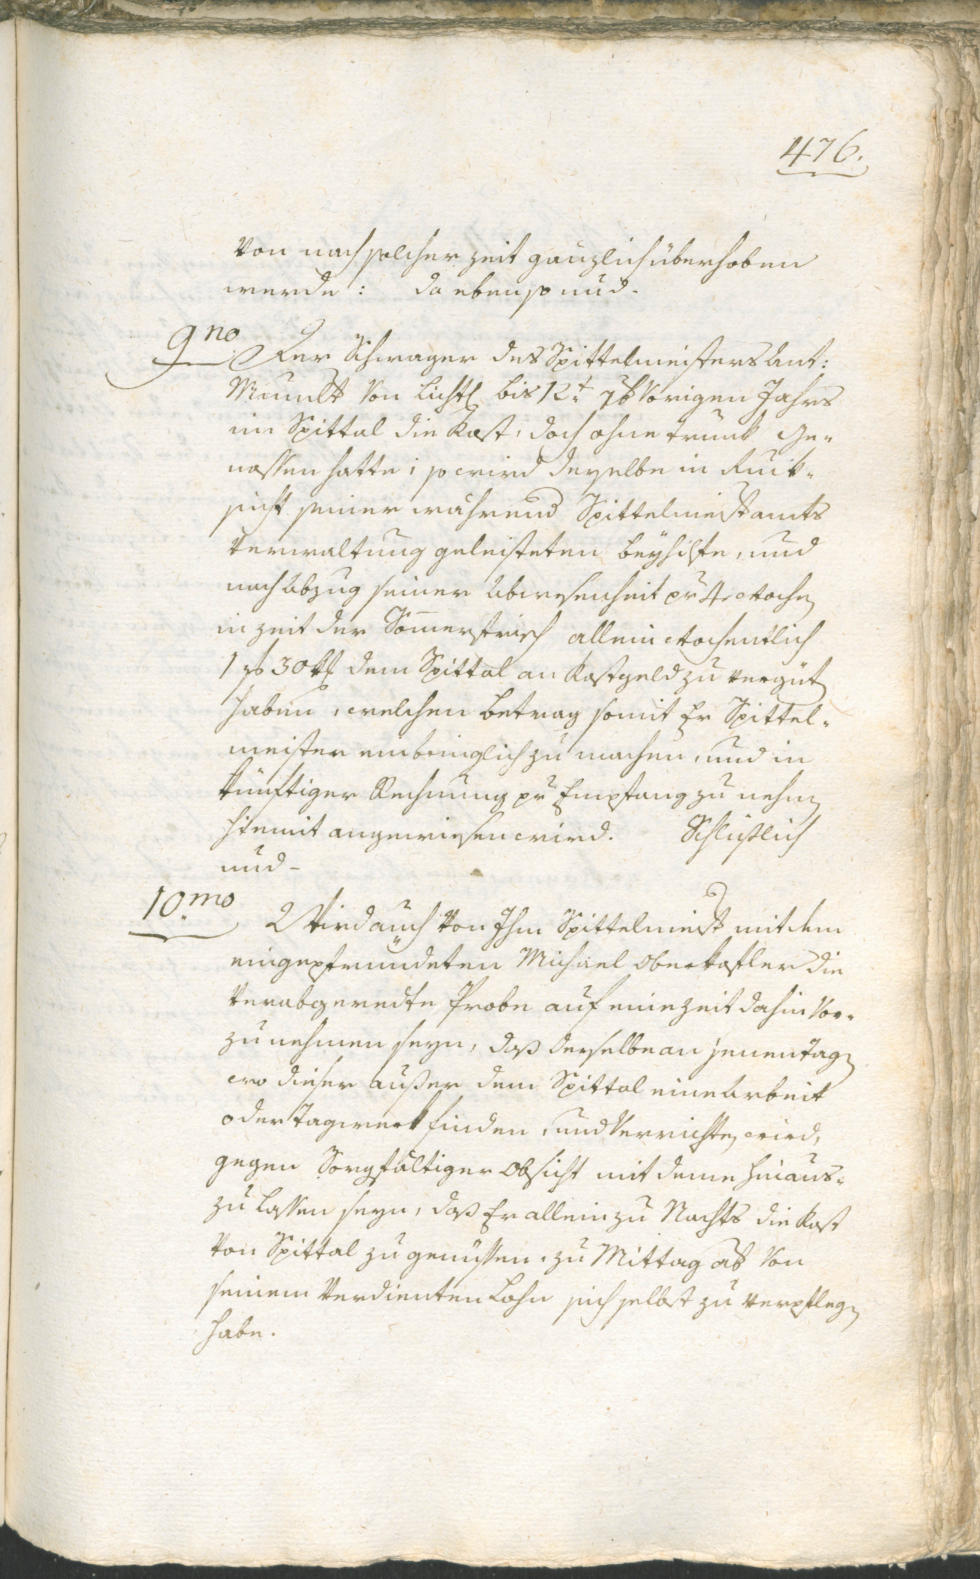 476.
von nach solcher zeit gänzlich überhoben
werde: da ebenso und.
9no Der Schwager des Spittelmeisters Ant:
Mundt von Lichtl bis 12t 7b vorigen Jahrs
im Spittal die Kost, doch ohne trunk ge-
nossen hatte; so wird derselbe in Ruck-
sicht seiner während Spittelmeistamts
Verwaltung geleisteten beyhilfe, und
nach Abzug seiner Abwesenheit pr 4 wochen
in zeit der Sommerfrisch allein wochentlich
1 f 30 kr dem Spittal an Kostgeld zu vergüten
haben, welchen betrag somit Er Spittel-
meister einbringlich zu machen, und in
künftiger Rechnung pr Empfang zu nehmen
hiemit angewiesen wird. Schlüßlich
und-
10.mo Wird auch von Ihm Spittelmeist mit dem
eingepfründeten Michael Oberkofler die
verabgeredte Probe auf eine zeit dahin vor-
zunehmen seyn, daß derselbe an jenen Tagen
wo dieser außer dem Spittal eine Arbeit
oder Tagwerk finden, und verrichten wird,
gegen Sorgfältiger Obsicht mit deme hinaus-
zulassen seyn, daß Er allein zu Nachts die Kost
von Spittal zu genüssen, zu Mittag ab von
seinem verdienten Lohn sich selbst zu verpflegen
habe.